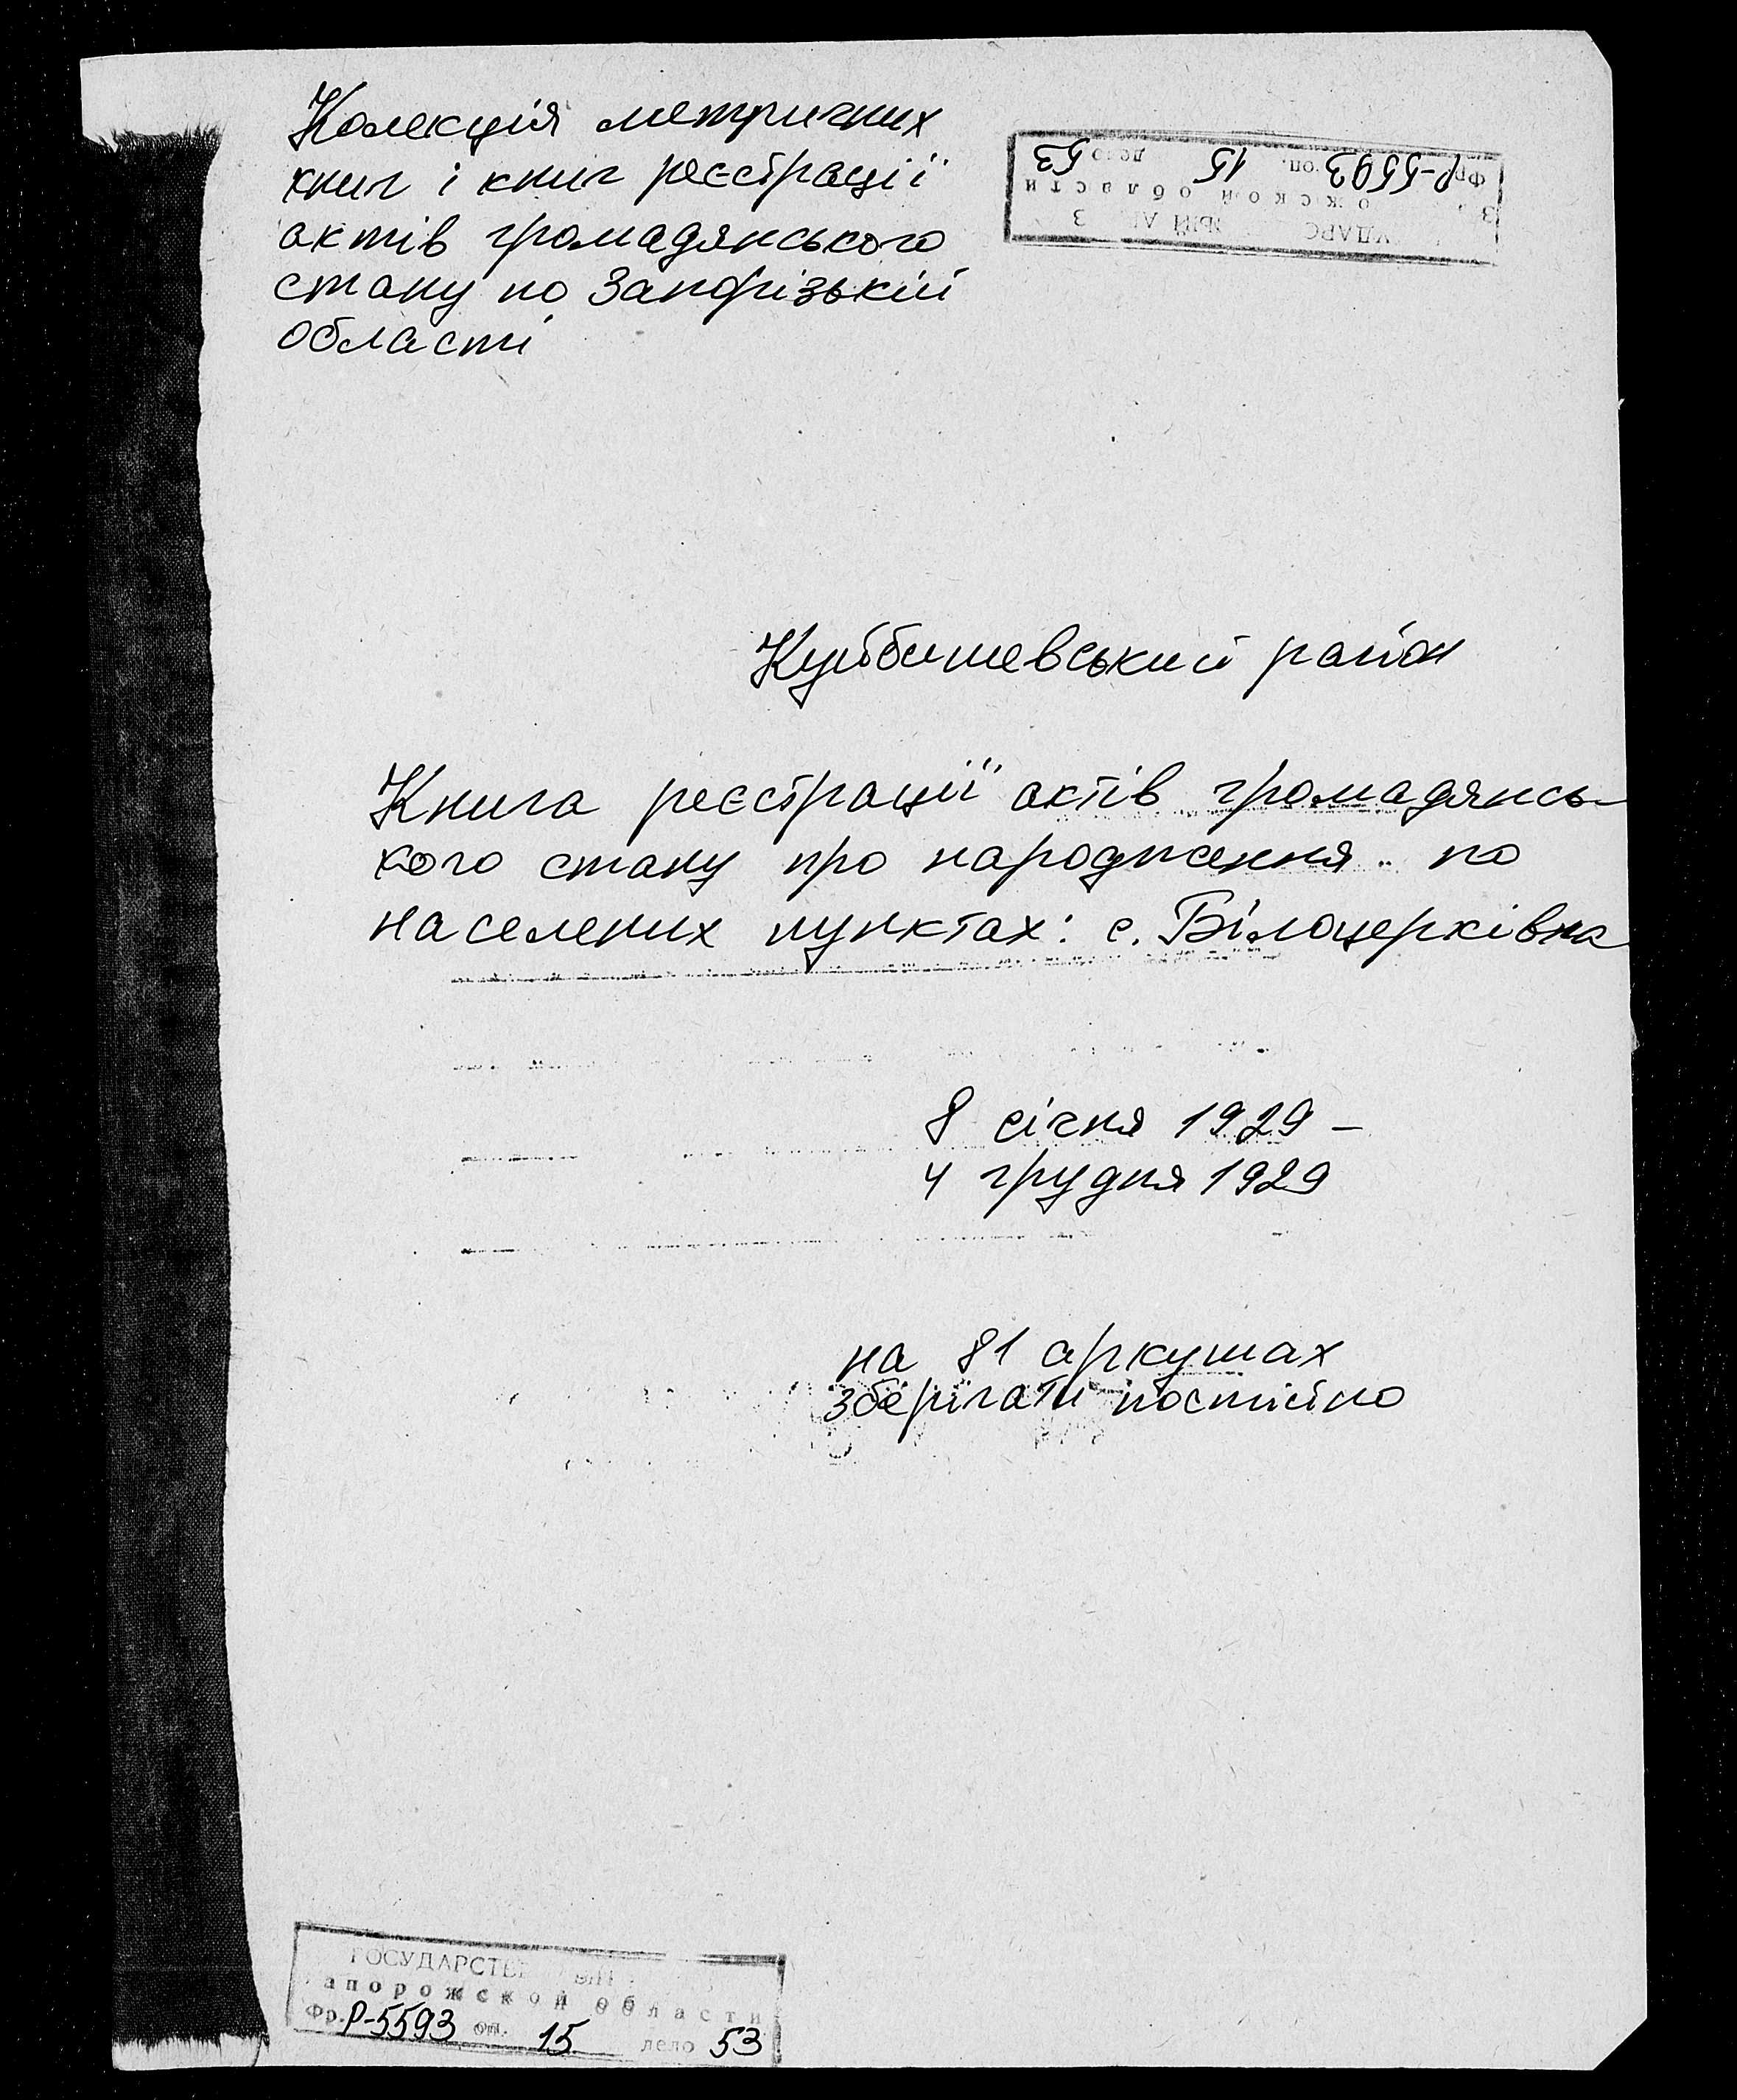 Колекція метричних
книг і книг реєстрації
актів громадянського
стану по Запорізькій
області
Фр. Р-5593 оп. 15 дело 53
области
Куйбишевський район
Книга реєстрації актів громадянсь-
кого стану про народження по
населених пунктах: с. Білоцерківка
8 січня 1929 –
4 грудня 1929
на 81 аркушах
зберігати постійно
области
Фр. Р-5593 оп. 15 дело 53